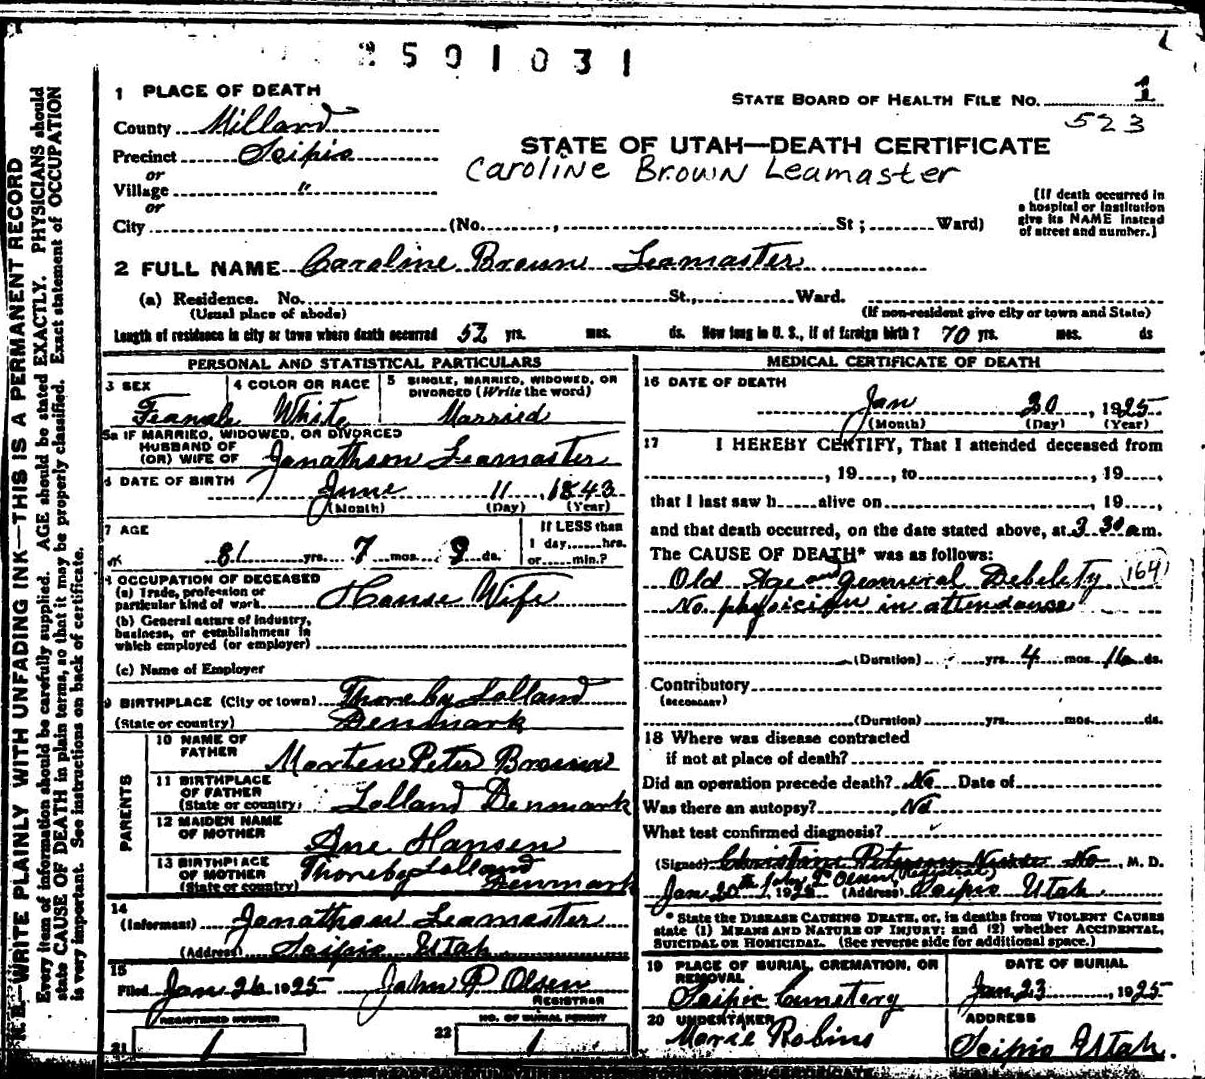 2501031
1 PLACE OF DEATH
STATE BOARD OF HEALTH FILE NO. 1
523
County Millard
Precinct Scipio
or
Village "
or
City (No. , St; Ward)
STATE OF UTAH—DEATH CERTIFICATE
Caroline Brown Leamaster
(If death occurred in
a hospital or institution
give its NAME instead
of street and number.)
2 FULL NAME Caroline Brown Leamaster
(a) Residence. No. St., Ward.
(Usual place of abode) (If non-resident give city or town and State)
Length of residence in city or town where death occurred 52 yrs. mos. ds. How long in U. S., if of foreign birth? 70 yrs. mos. ds
PERSONAL AND STATISTICAL PARTICULARS
3 SEX 4 COLOR OR RACE 5 SINGLE, MARRIED, WIDOWED, OR
DIVORCED (Write the word)
Feamale White Married
5a IF MARRIED, WIDOWED, OR DIVORCED
HUSBAND OF
(OR) WIFE OF Jonathson Leamaster
6 DATE OF BIRTH
June 11, 1843
(Month) (Day) (Year)
7 AGE If LESS than
1 day, hrs.
81 yrs. 7 mos. 9 ds. or min.?
8 OCCUPATION OF DECEASED
(a) Trade, profession or
particular kind of work House Wife
(b) General nature of industry,
business, or establishment in
which employed (or employer)
(c) Name of Employer
9 BIRTHPLACE (City or town) Thoreby Lolland
(State or country) Denmark
PARENTS
10 NAME OF
FATHER Morten Peter Brown
11 BIRTHPLACE
OF FATHER
(State or country) Lolland Denmark
12 MAIDEN NAME
OF MOTHER Ane Hansen
13 BIRTHPLACE
OF MOTHER Thoreby Lolland
(State or country) Denmark
14
(Informant) Jonathan Leamaster
(Address) Scipio Utah
15
Filed Jan 26 1925 John P Olsen
REGISTRAR
REGISTERED NUMBER NO. OF BURIAL PERMIT
21 1 22 1
MEDICAL CERTIFICATE OF DEATH
16 DATE OF DEATH
Jan 20, 1925
(Month) (Day) (Year)
17 I HEREBY CERTIFY, That I attended deceased from
, 19 , to , 19 ,
that I last saw h alive on , 19 ,
and that death occurred, on the date stated above, at 3 30 am.
The CAUSE OF DEATH* was as follows:
Old Age and Jemieral Debelety 164
No physicign in attendance
(Duration) yrs. 4 mos. 16 ds.
Contributory
(SECONDARY)
(Duration) yrs. mos. ds.
18 Where was disease contracted
if not at place of death?
Did an operation precede death? No Date of
Was there an autopsy? No
What test confirmed diagnosis?
(Signed) Christine Peterson Nurse No M. D.
Jan 20th 1925 John P Olsen (Registrar) (Address) Scipio Utah
* State the DISEASE CAUSING DEATH, or, in deaths from VIOLENT CAUSES
state (1) MEANS AND NATURE OF INJURY; and (2) whether ACCIDENTAL,
SUICIDAL OR HOMICIDAL. (See reverse side for additional space.)
19 PLACE OF BURIAL, CREMATION, OR
REMOVAL DATE OF BURIAL
Scipio Cemetery Jan 23, 1925
20 UNDERTAKER ADDRESS
Marie Robins Scipio Utah.
N. B.—WRITE PLAINLY WITH UNFADING INK—THIS IS A PERMANENT RECORD
Every item of information should be carefully supplied. AGE should be stated EXACTLY. PHYSICIANS should
state CAUSE OF DEATH in plain terms, so that it may be properly classified. Exact statement of OCCUPATION
is very important. See instructions on back of certificate.